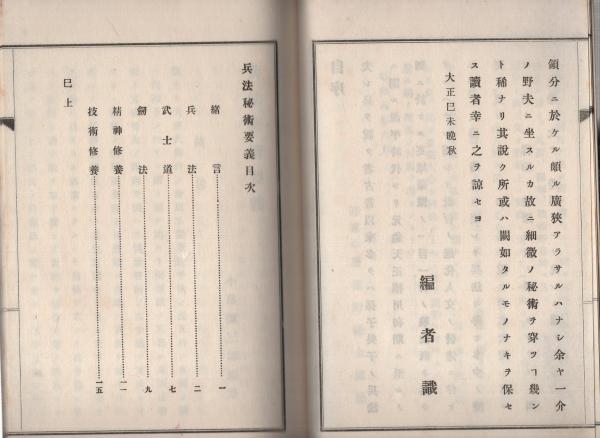 領分ニ於ケル頗ル廣狹アラサルハナシ余ヤ一介
ノ野夫ニ坐スルカ故ニ細微ノ秘術ヲ穿ツヿ幾ン
ト稀ナリ其說ク所或ハ闕如タルモノナキヲ保セ
ス讀者幸ニ之ヲ諒セヨ
大正巳未晩秋
編者識
兵法秘術要義目次
緒言……………………一
兵法……………………二
武士道……………………七
劒法……………………九
精神修養……………………一一
技術修養……………………一五
巳上